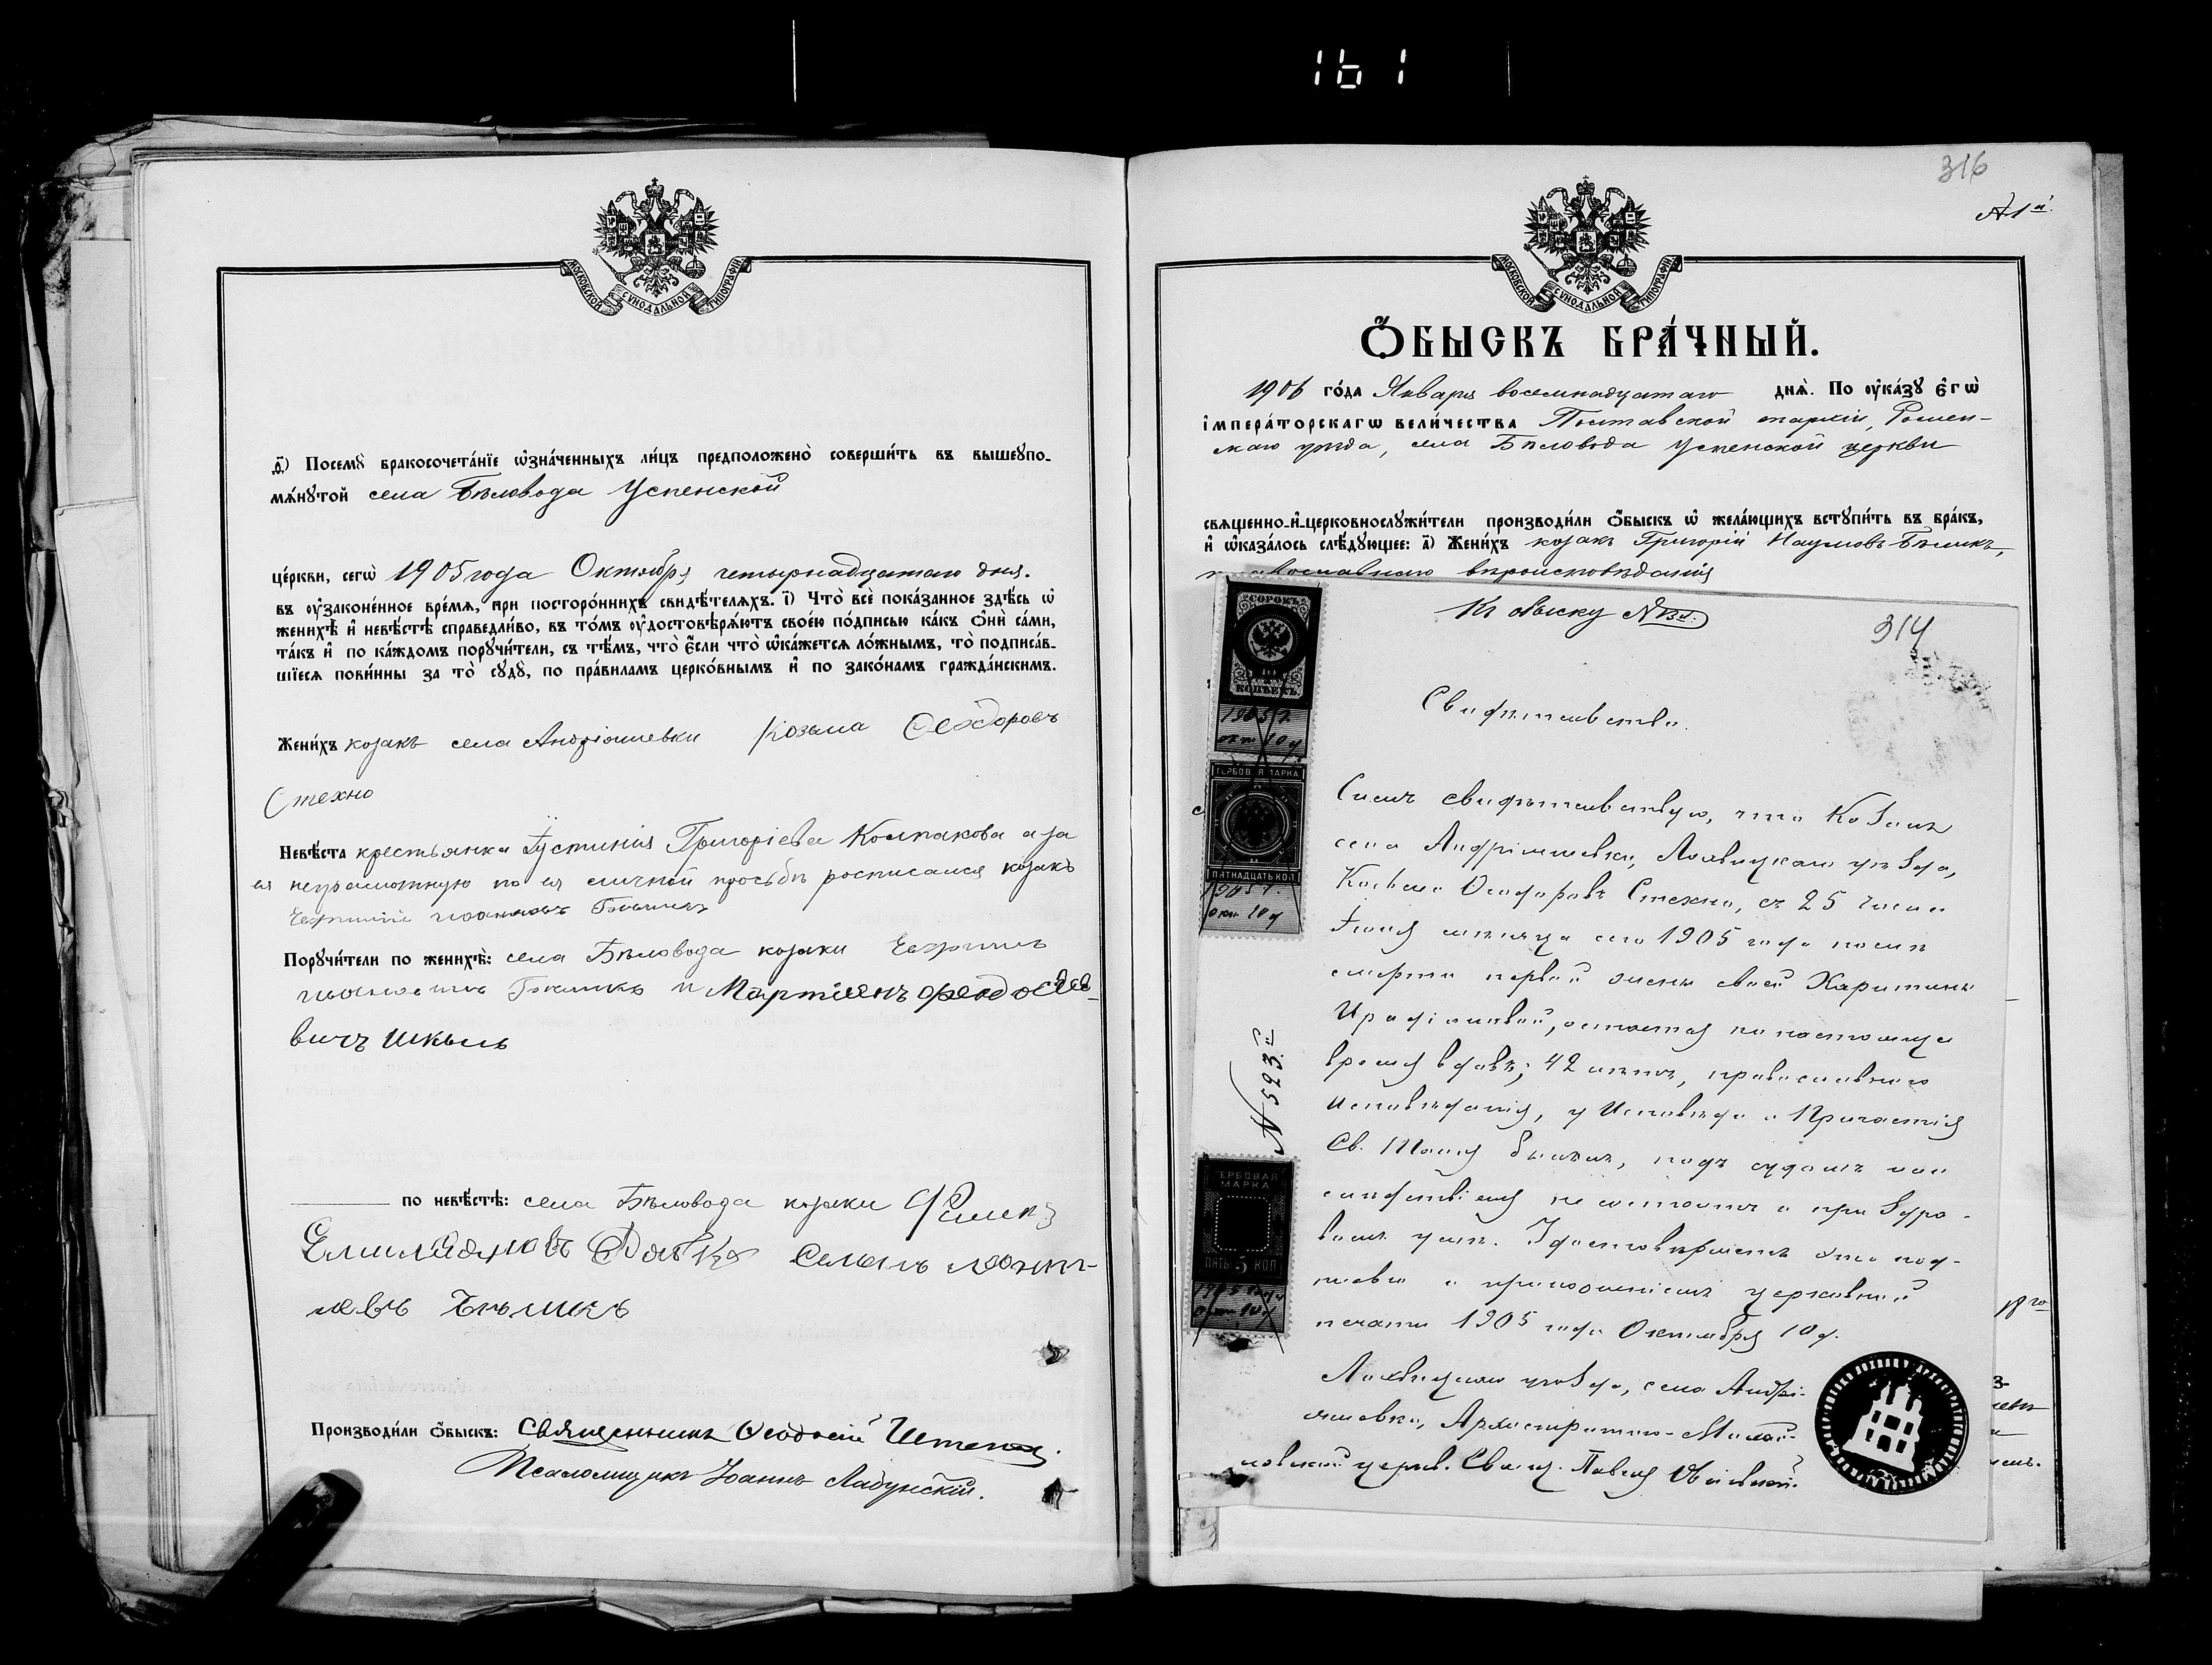 161
МОСКОВСКОЙ СѴНОДАЛЬНОЙ ТИПОГРАФІИ
ѳ҃) Посемꙋ̀ бракосочета́нїе ѡ҆зна́ченныхъ ли́цъ предположено̀ соверши́ть въ вышеꙋпо-
мѧ́нꙋтой села Бѣловода Успенской
це́ркви, сегѡ̀ 1905 года Октября четырнадцатаго дня.
въ ᲂу҆зако́не́нное вре́мѧ, при посторо́ннихъ свидѣ́телѧхъ. і҃) Что̀ всѐ пока́занное здѣ́сь ѡ҆
женихѣ̀ и҆ невѣ́стѣ справедли́во, въ то́мъ ᲂу҆достовѣрѧ́ютъ свое́ю по́дписью ка́къ ѻ҆нѝ са́ми,
та́къ и҆ по ка́ждомъ порꙋчи́тели, съ тѣ́мъ, что̀ є҆́сли что̀ ѡ҆ка́жетсѧ ло́жнымъ, то̀ подписа́в-
шїесѧ пови́нны за то̀ сꙋдꙋ̀, по пра́виламъ церко́внымъ и҆ по зако́намъ гражда́нскимъ.
Жени́хъ козакъ села Андріяшевки Козьма Ѳеодоровъ
Стехно
Невѣ́ста крестьянка Іустинія Григоріева Колпакова а за
ея неграмотную по ея личной просьбѣ росписался козакъ
Іоанновъ Бѣликъ
Порꙋчи́тели по женихѣ̀: села Бѣловода козаки
Бѣликъ и Мартіянъ Феодосіе-
вичъ Шкыль
по невѣ́стѣ: села Бѣловода козаки
Семенъ
Бѣликъ
Производи́ли ѻ҆́быскъ: Священникъ Ѳеодосій
Псаломщикъ Іоаннъ Ладунскій.
316
№ 1й.
МОСКОВСКОЙ СѴНОДАЛЬНОЙ ТИПОГРАФІИ
Ѻ҆́БЫСКЪ БРА́ЧНЫЙ.
1906 го́да Января восемнадцатаго днѧ̀. По ᲂу҆ка́зꙋ є҆гѡ̀
і҆мпера́торскагѡ вели́чества Полтавской епархіи, Ромен-
скаго уѣзда, села Бѣловода Успенской церкви
свѧще́нно-и҆-церковнослꙋжи́тели производи́ли ѻ҆́быскъ ѡ҆ жела́ющихъ встꙋпи́ть въ бра́къ,
и҆ ѡ҆каза́лось слѣ́дꙋющее: а҃) Жени́хъ козакъ Григорій Наумовъ Бѣликъ,
православнаго вѣроисповѣданія
Къ обыску № 13й.
314
СОРОКЪ
40
КОПѢЕКЪ
1905 г.
окт. 10 д
ГЕРБОВАЯ МАРКА
ПЯТНАДЦАТЬ КОП.
1905 г.
окт 10 д
№ 523й
ГЕРБОВАЯ
МАРКА
ПЯТЬ 5 КОП
1905 года
окт 10 д
Свидѣтельство.
Симъ свидѣтельствую, что Козакъ
села Андріяшевки, Лохвицкаго уѣзда,
Косьма Ѳеодоровъ Стехно, съ 25 числа
Іюня мѣсяца сего 1905 года послѣ
смерти первой жены своей Харитины
Иродіоновой, остается по настоящее
время вдовъ; 42 лѣтъ, православнаго
исповѣданія, у Исповѣди и Причастія
Св. Таинъ бываетъ, подъ судомъ или
слѣдствіемъ не состоитъ и при здра-
вомъ умѣ. Удостовѣряемъ это под-
писью и приложеніемъ церковной
печати 1905 года Октября 10 д.
Лохвицкаго уѣзда, села Андрі-
яшевки, Архистратиго-Михай-
ловской церкв. Свящ. Павелъ
18го